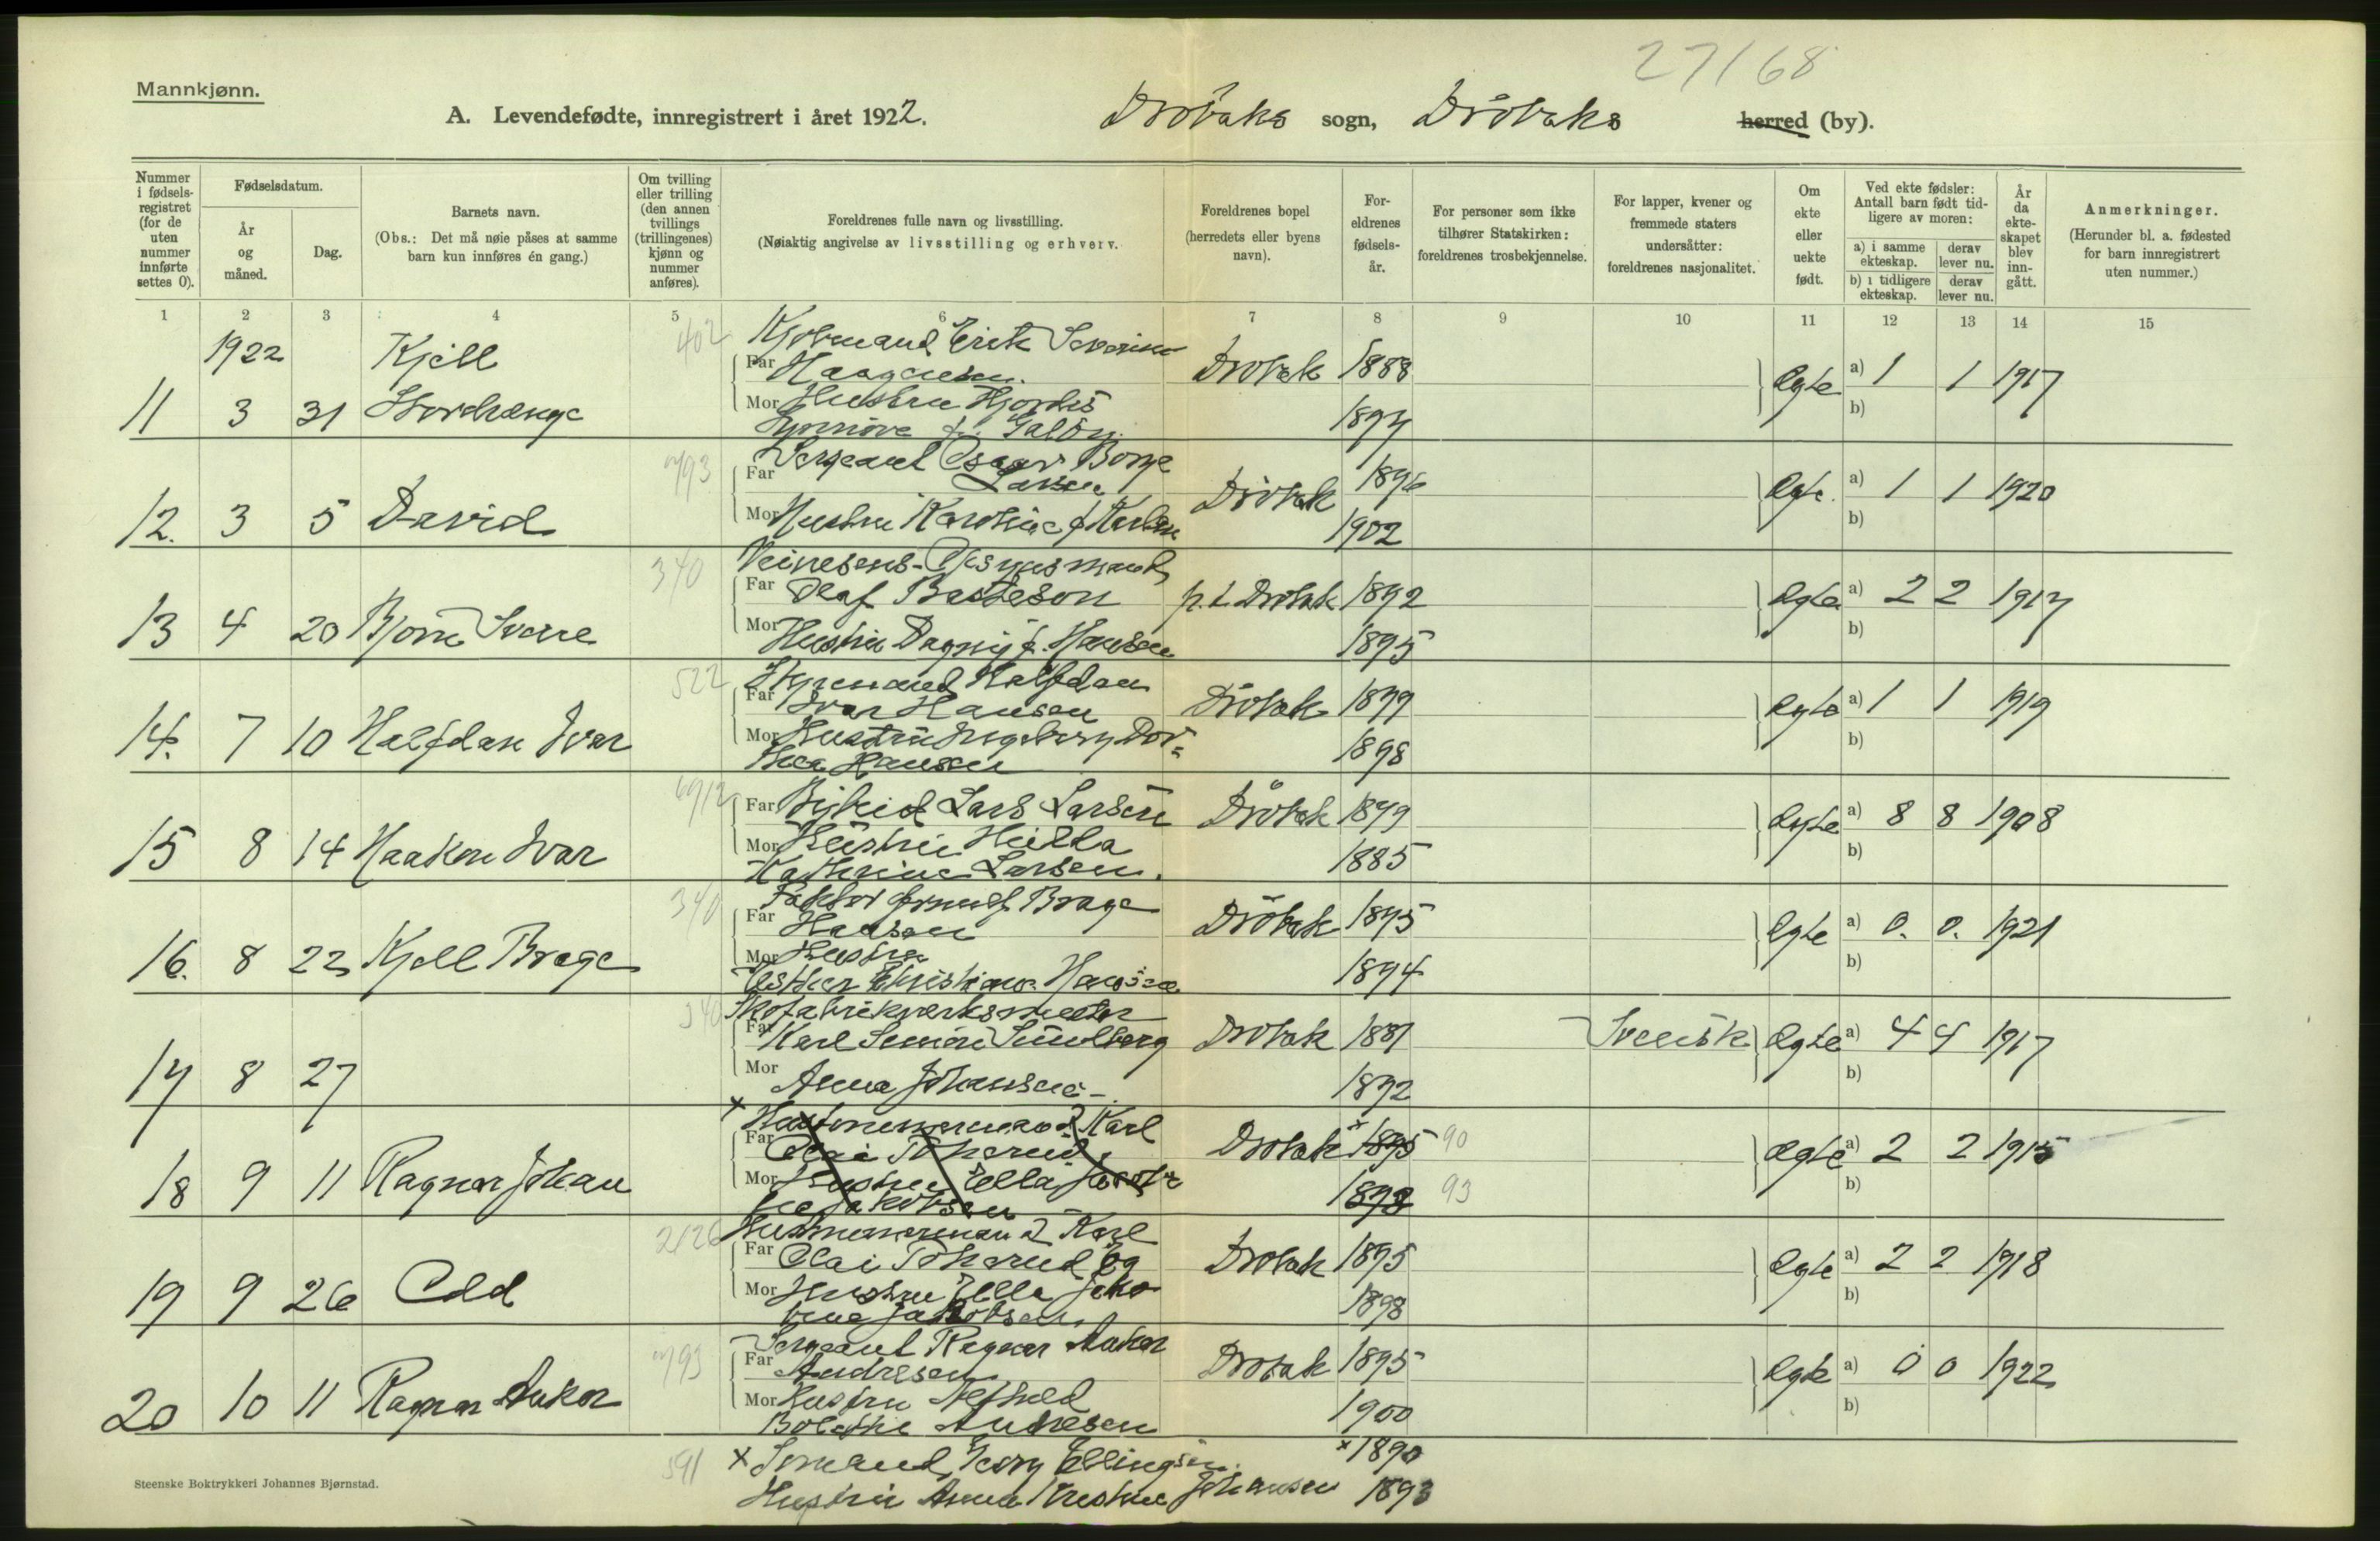 27/68
Mannkjønn.
A. Levendefødte, innregistrert i året 1922. Drøbaks sogn, Drøbaks herred (by).
Nummer i fødsels-registret (for de uten nummer innførte settes 0).
Fødselsdatum.
År og måned.
Dag.
Barnets navn.
(Obs.: Det må nøie påses at samme barn kun innføres én gang.)
Om tvilling eller trilling (den annen tvillings (trillingenes) kjønn og nummer anføres).
Foreldrenes fulle navn og livsstilling.
(Nøiaktig angivelse av livsstilling og erhverv.
Foreldrenes bopel (herredets eller byens navn).
For-eldrenes fødsels-år.
For personer som ikke tilhører Statskirken: foreldrenes trosbekjennelse.
For lapper, kvener og fremmede staters undersåtter: foreldrenes nasjonalitet.
Om ekte eller uekte født.
Ved ekte fødsler: Antall barn født tid-ligere av moren:
a) i samme ekteskap.
derav lever nu.
b) i tidligere ekteskap.
derav lever nu.
År da ekte-skapet blev inn-gått.
Anmerkninger.
(Herunder bl. a. fødested for barn innregistrert uten nummer.)
1 2 3 4 5 6 7 8 9 10 11 12 13 14 15
1922 Kjell 402 Kjøbmand Erik Severin
Far Haagensen. Drøbak 1888 Ægte a) 1 1 1917
11 3 31 Mor Hustru Hjørdis b)
f. 1897
Sergeant Oscar Borge
Far Larsen Drøbak 1896 Ægte a) 1 1 1920
12. 3 5 David Mor Hustru Karoline f. Karlsen 1902 b)
340
Far Olaf Basteson p.t. Drøbak 1892 Ægte a) 2 2 1917
13 4 20 Bjørn Sverre Mor Hustru Dagny f. Hansen 1895 b)
522 Styrmand Halfdan
Far Ivar Hansen Drøbak 1899 Ægte a) 1 1 1919
14. 7 10 Halfdan Ivar Mor Hustru Ingeborg Doro=
thea Hansen 1898 b)
Far Lars Larsen Drøbak 1879 Ægte a) 8 8 1908
15 8 14 Haakon Ivar Mor Hustru Hulda
Katherine Larsen. 1885 b)
340 Faktor Brage
Far Hansen Drøbak 1895 Ægte a) 0. 0. 1921
16. 8 22 Kjell Brage Mor Hustru
Esther Christiane Hansen 1894 b)
340 Skofabrikverksmester
Far Karl Simon Sundberg Drøbak 1881 Svensk Ægte a) 4 4 1917
17 8 27 Mor Anna Johansen 1892 b)
x Karl
Far Olai Drøbak x 1895 90 Ægte a) 2 2 1915
18 9 11 Ragnar Johan Mor Hustru Ella
Jakobsen 1898 93 b)
2126 Karl
Far Olai og Drøbak 1895 Ægte a) 2 2 1918
19 9 26 Odd Mor Hustru Ella Jako
bine Jakobsen 1898 b)
Sergeant Ragnar Anker
Far Andresen Drøbak 1895 Ægte a) 0 0 1922
20 10 11 Ragnar Anker Mor Hustru
Bolette Andresen 1900 b)
591 x Sømand Georg Ellingsen. x 1890
Hustru Anna Kristine Johansen 1893
Steenske Boktrykkeri Johannes Bjørnstad.